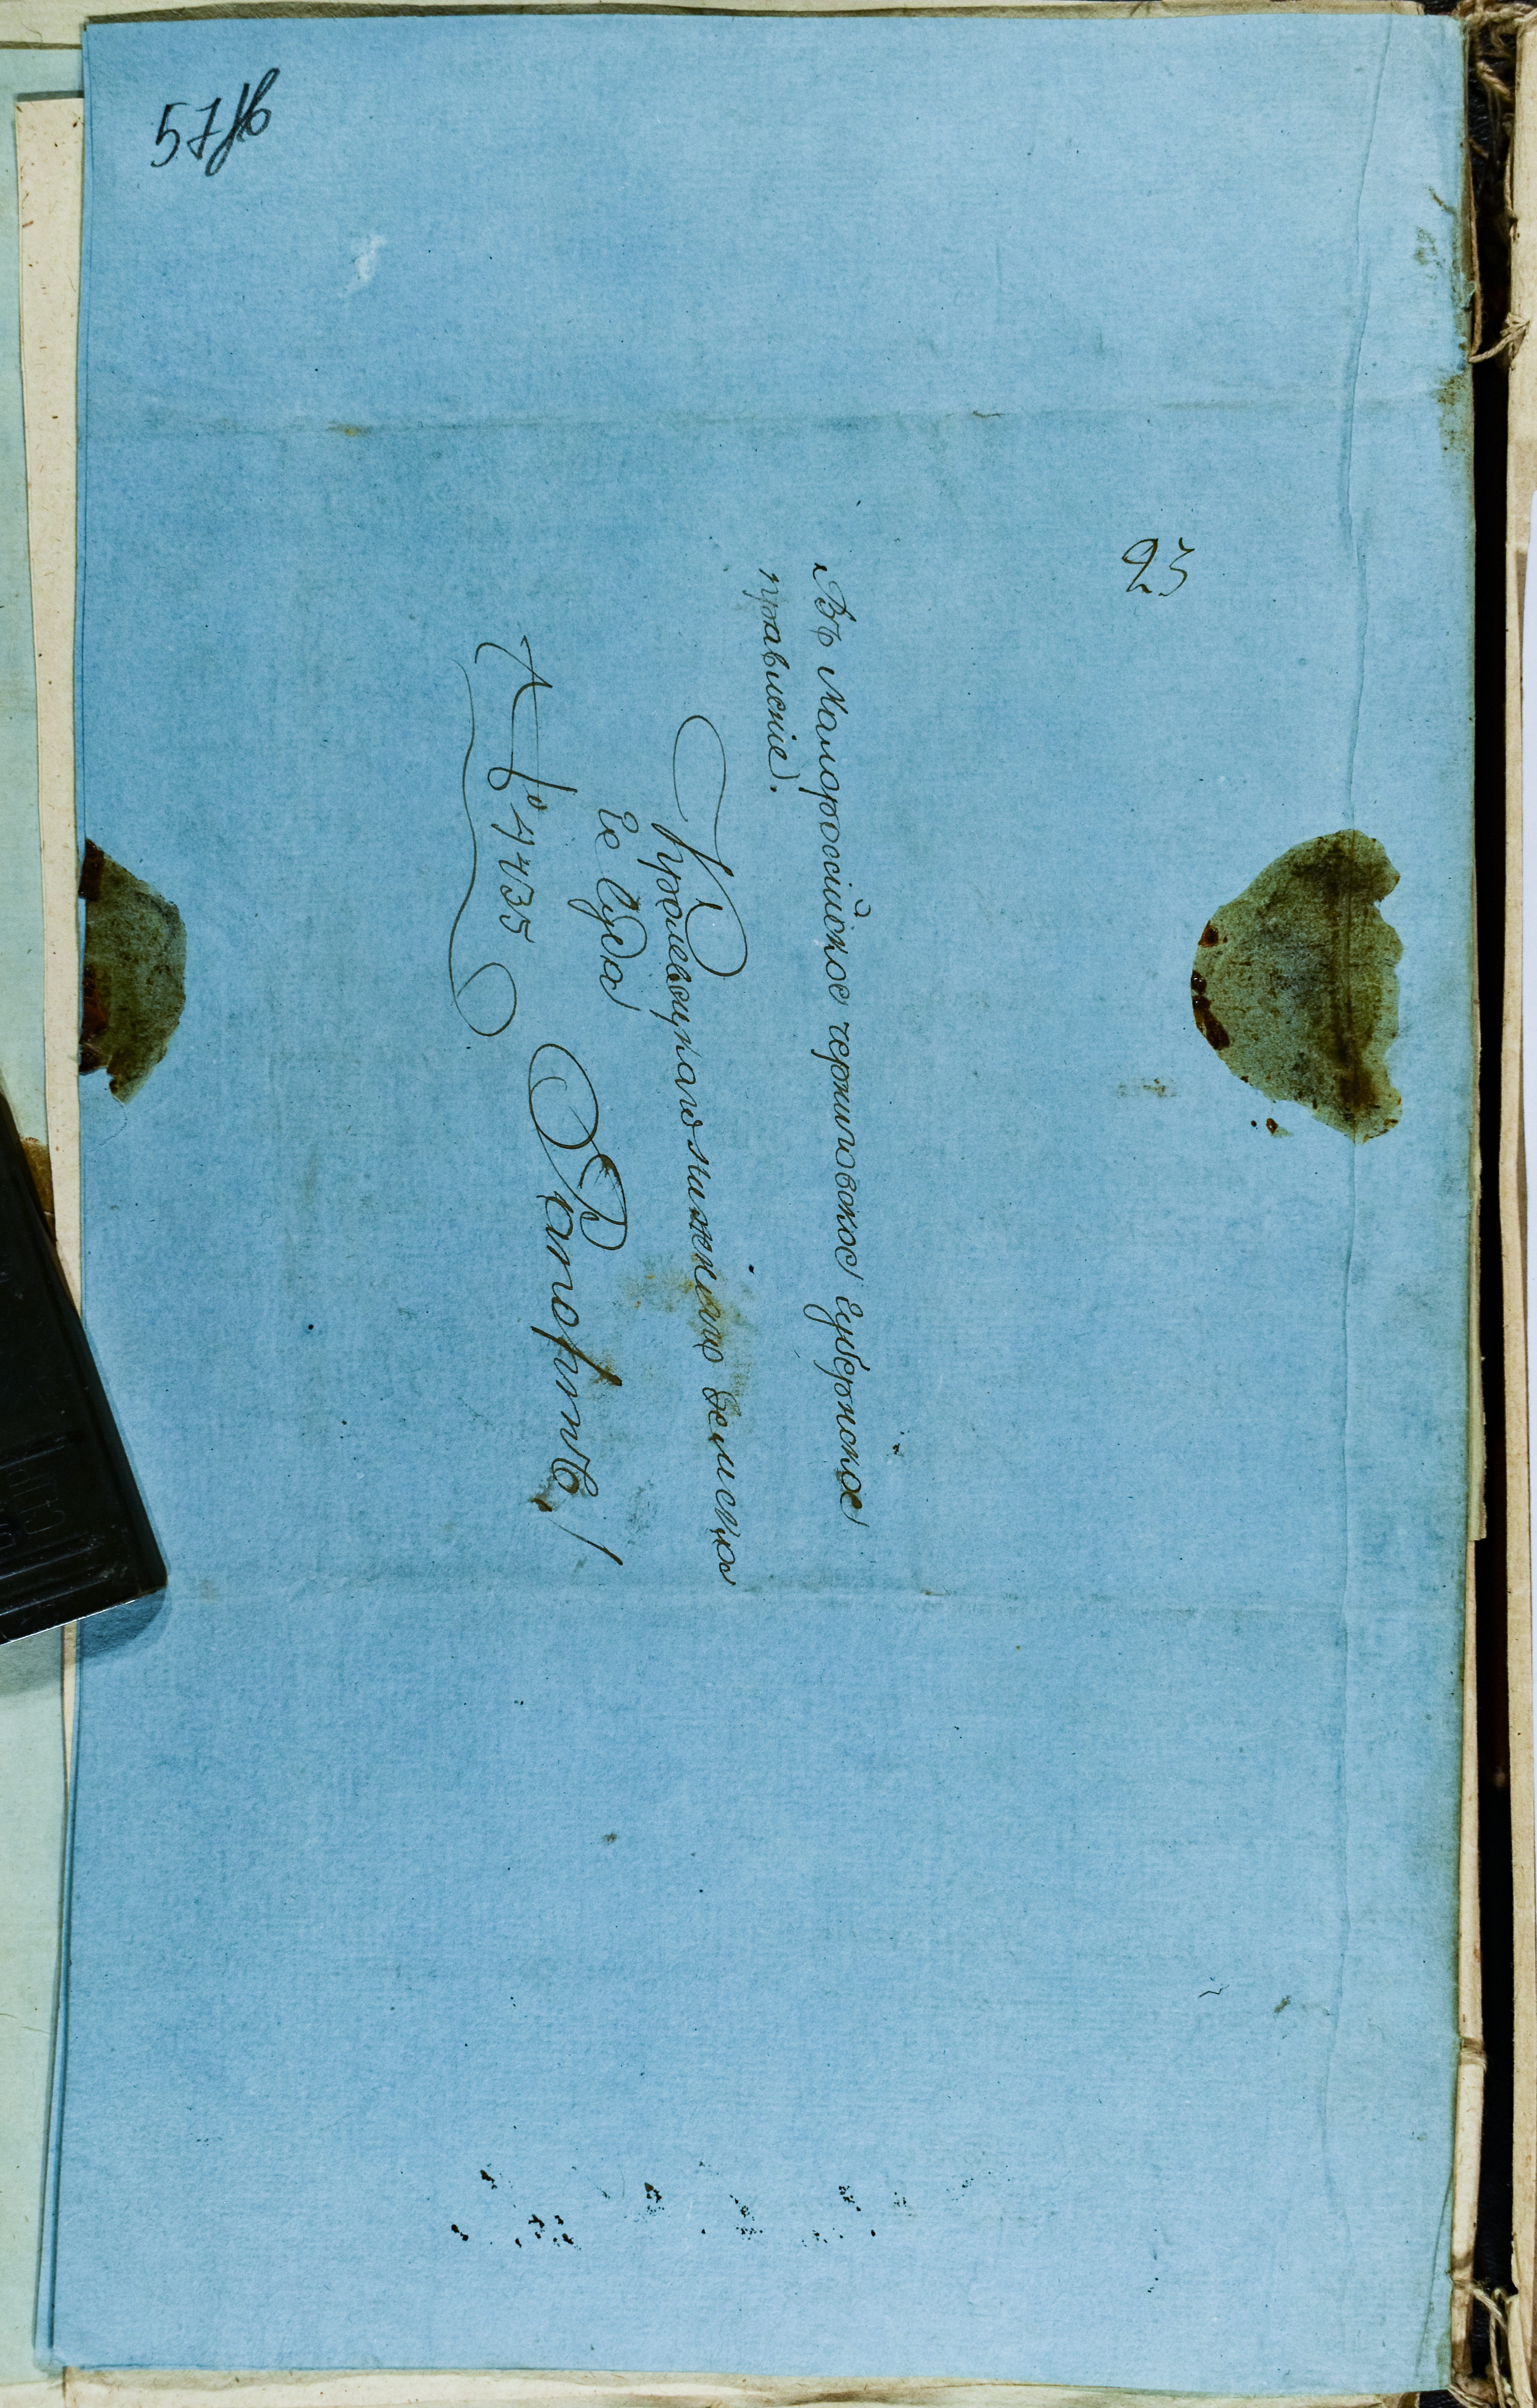 57/16
23
Въ Малоросійское черниговское губернское
правление.
Кролевецкаго нижнего земска
го Суда
№ 4435
Рапортъ